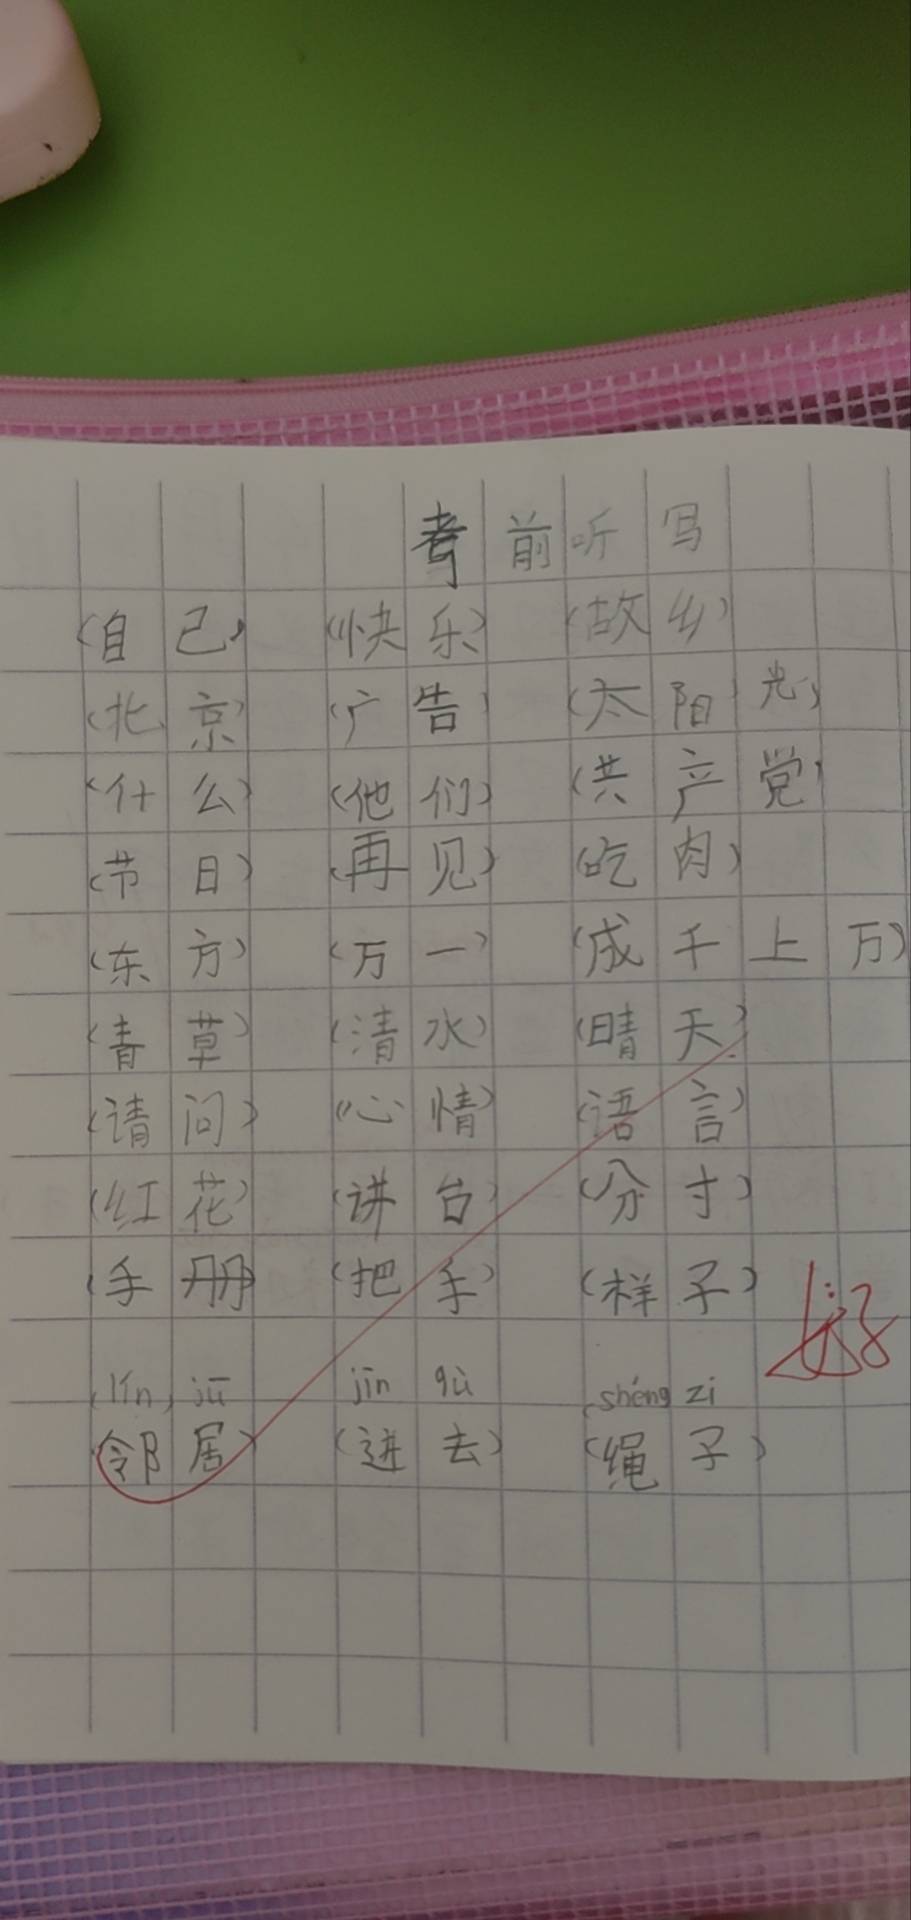 考前听写
(自己) (快乐) (故乡)
(北京) (广告) (太阳光)
(什么) (他们) (共产党)
(节日) (再见) (吃肉)
(东方) (万一) (成千上万)
(青草) (清水) (晴天)
(请问) (心情) (语言)
(红花) (讲台) (分寸)
(手册) (把手) (样子)
lín jū jìn qù shéng zi
(邻居) (进去) (绳子)
好